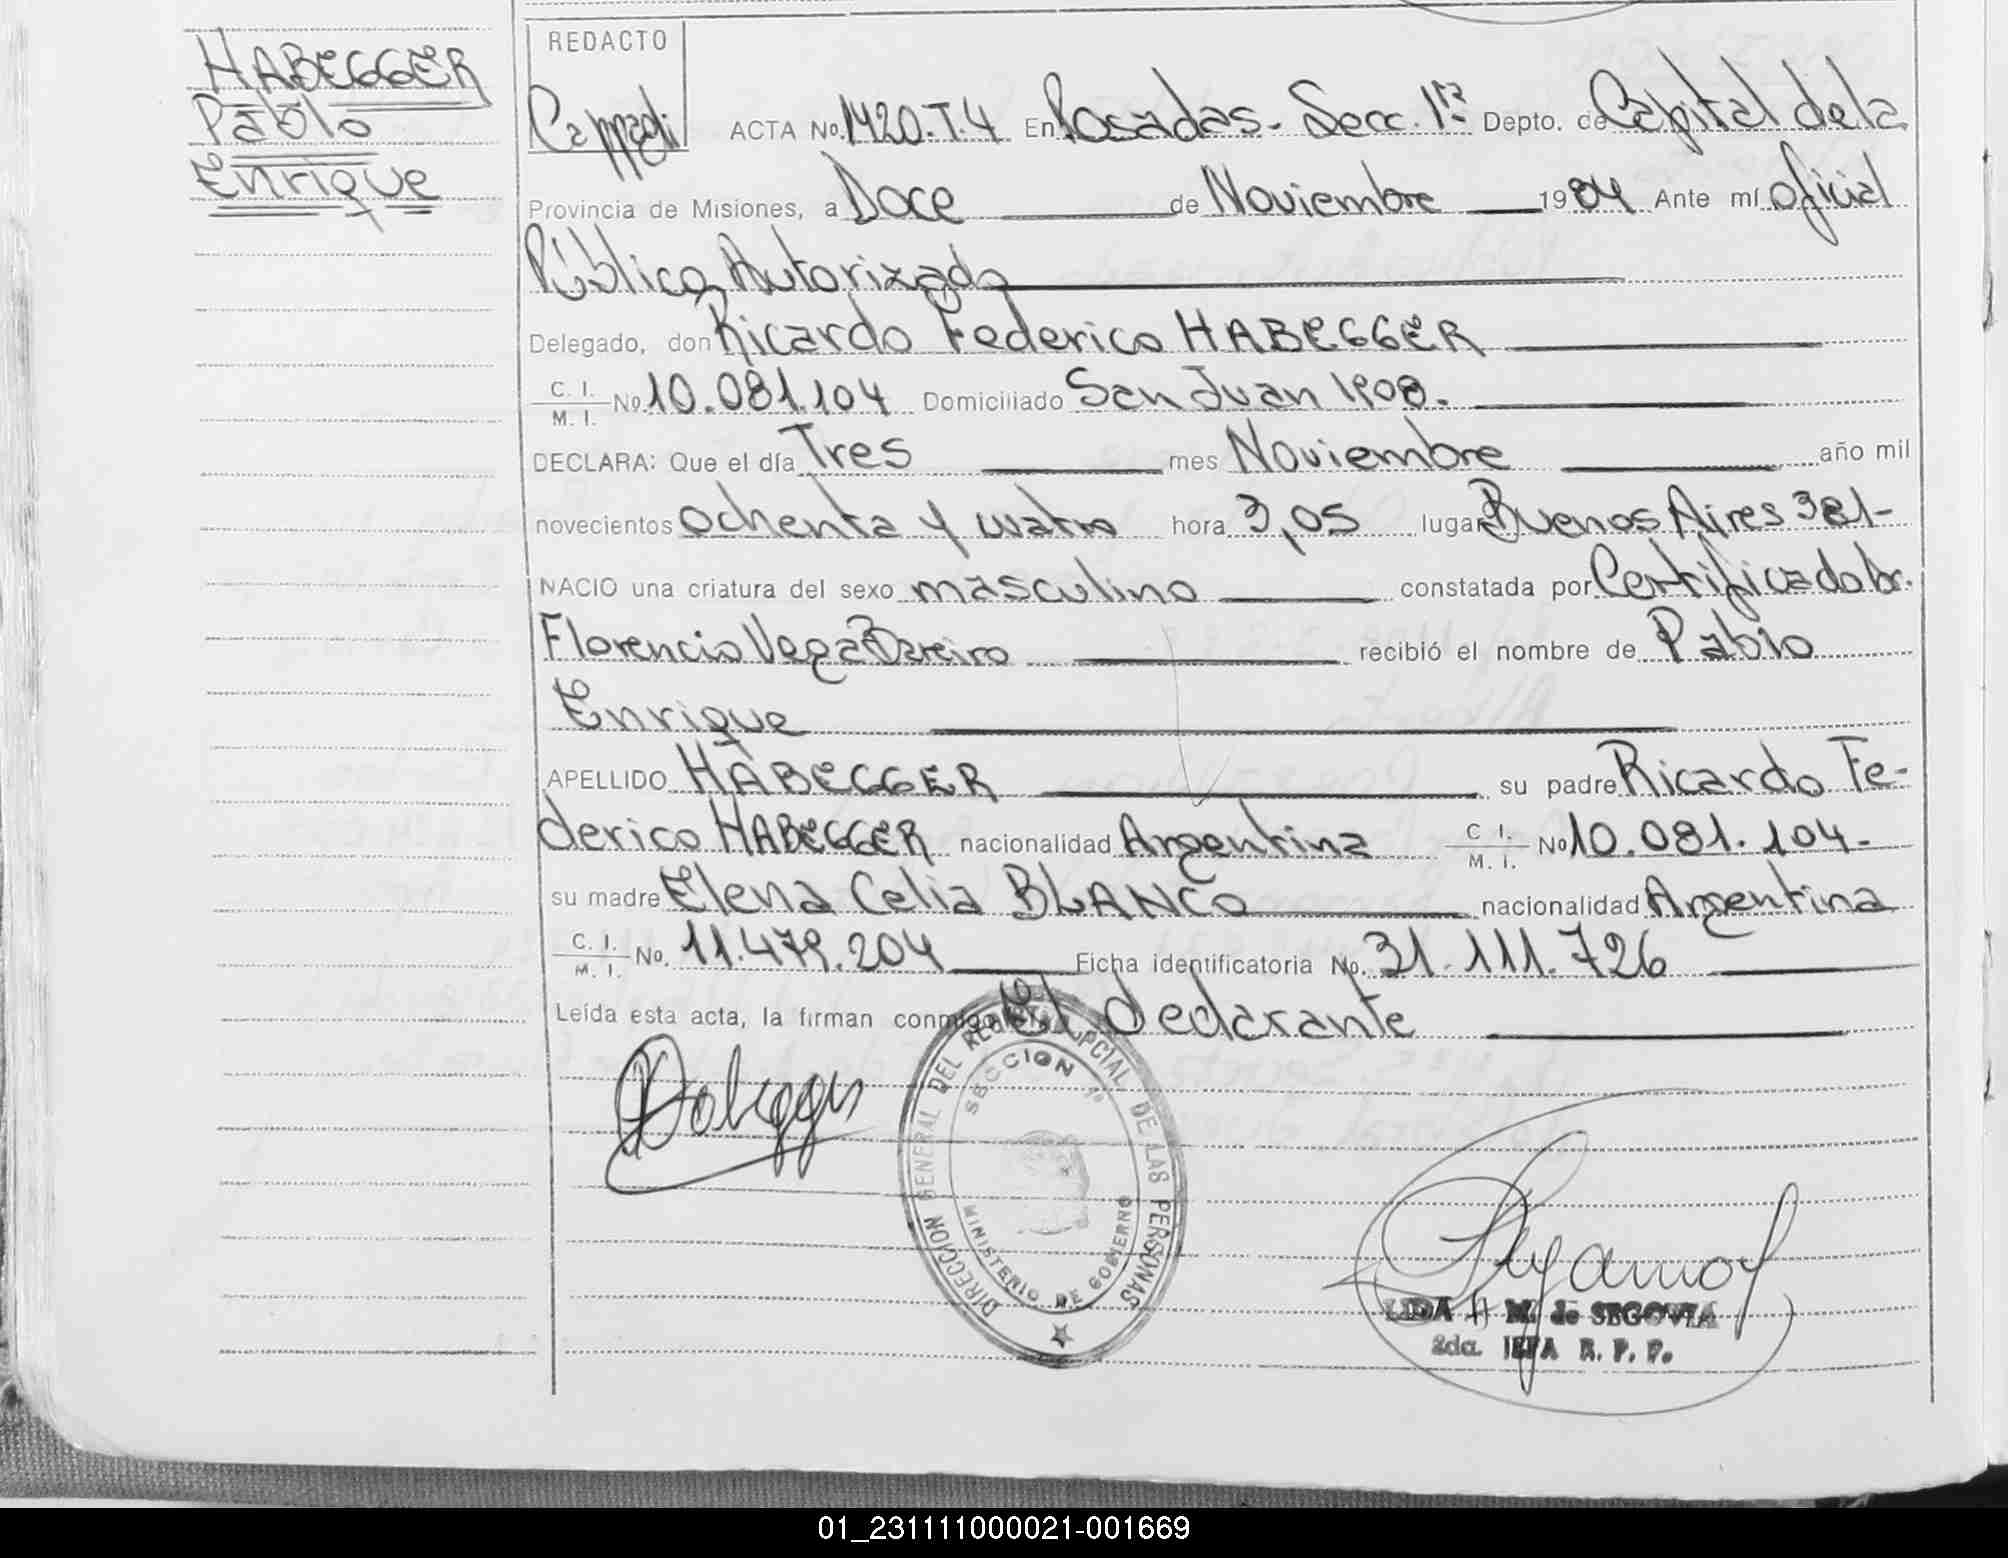 HABEGGER
Pablo
Enrique
REDACTO
ACTA No. 1420.T.4 En Posadas - Secc. 1ra Depto. de Capital de la
Provincia de Misiones, a Doce de Noviembre 1984 Ante mí Oficial
Público Autorizado
Delegado, don Ricardo Federico HABEGGER
C. I.
M. I. No 10.081.104 Domiciliado San Juan 1908.
DECLARA: Que el día Tres mes Noviembre año mil
novecientos ochenta y cuatro hora 3,05 lugar Buenos Aires 381-
NACIO una criatura del sexo masculino constatada por Certificado Dr.
Florencio Vega Bareiro recibió el nombre de Pablo
Enrique
APELLIDO HABEGGER su padre Ricardo Fe-
derico HABEGGER nacionalidad Argentina C I.
M. I. No 10.081.104-
su madre Elena Celia BLANCO nacionalidad Argentina
C. I.
M. I. No. 11.479.204 Ficha identificatoria No. 31.111.726
Leída esta acta, la firman conmigo El declarante
DIRECCION GENERAL DEL REG. PCIAL DE LAS PERSONAS
SECCION 1º
MINISTERIO DE GOBIERNO
LIDA M. de SEGOVIA
2da. JEFA R. P. P.
01_231111000021-001669